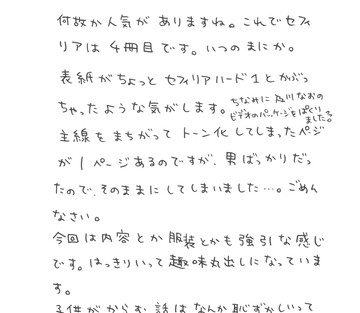 何故か人気がありますね。これでセフィ
リアは4冊目です。いつのまにか。
表紙がちょっとセフィリアハード1とかぶっ
ちゃったような気がします。ちなみに及川なおの
ビデオのパッケージをぱくり
ました。
主線をまちがってトーン化してしまったページ
が1ページあるのですが、男ばっかりだっ
たので、そのままにしてしまいました…。ごめん
なさい。
今回は内容とか服装とかも強引な感じ
です。はっきりいって趣味丸出しになっていま
す。
子供がからむ話はなんか恥ずかしいって